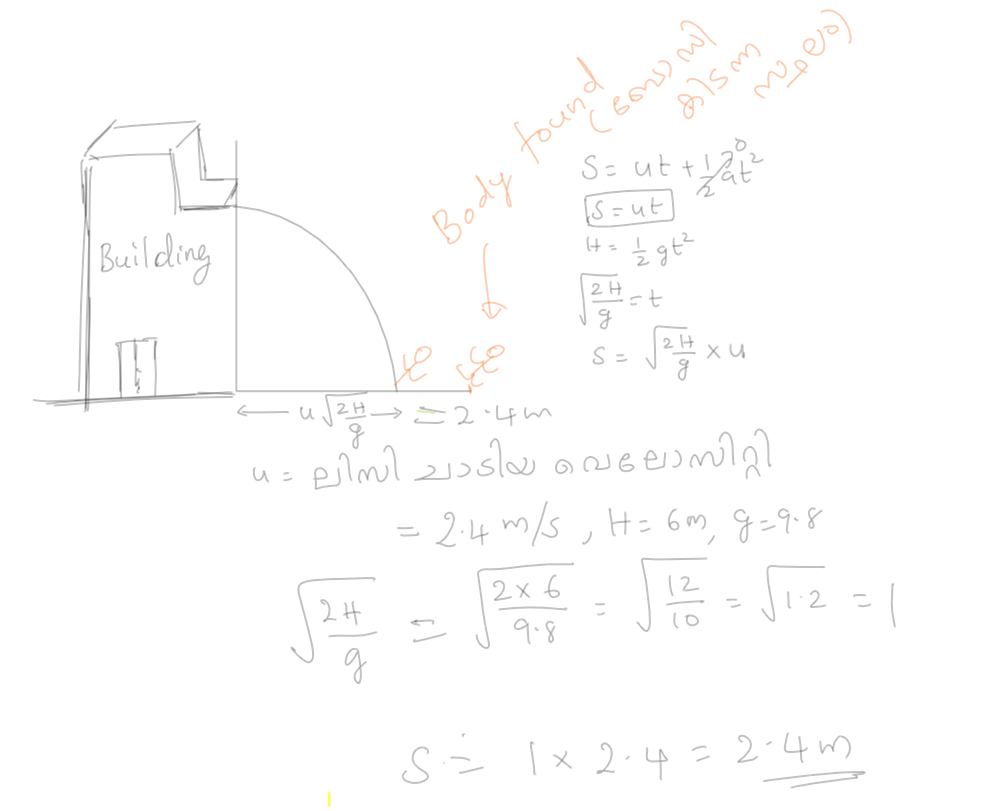 Body found
(ബോഡി
കിടന്ന
സ്ഥലം)
Building
S = ut + 1/2 at² 0
S = ut
H = 1/2 gt²
√(2H/g) = t
S = √(2H/g) × u
← u √(2H/g) → = 2.4m
u = ലിസി ചാടിയ വെലോസിറ്റി
= 2.4 m/s , H = 6m, g = 9.8
√(2H/g) = √(2×6/9.8) = √(12/10) = √1.2 = 1
S ≐ 1 × 2.4 = 2.4m